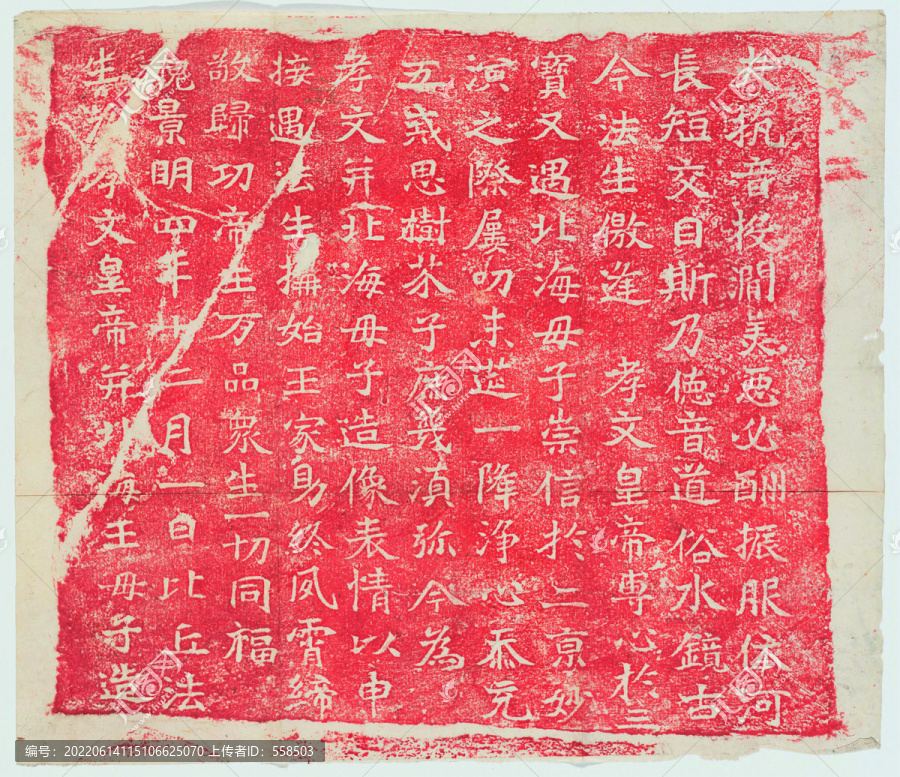 夫抗音投澗美惡必酬振服依河
長短交目斯乃德音道俗水鏡古
今法生儌逢 孝文皇帝專心於三
寶又遇北海母子崇信於二京妙
演之際屢叨末筵一降淨心忝充
五戒思樹芥子庶幾須弥今為
孝文并北海母子造像表情以申
接遇法生構始王家助終夙霄締
敬歸功帝王万品眾生一切同福
魏景明四年十二月一日比丘法
生孝文皇帝并北海王母子造
编号：20220614115106625070 上传者ID：558503